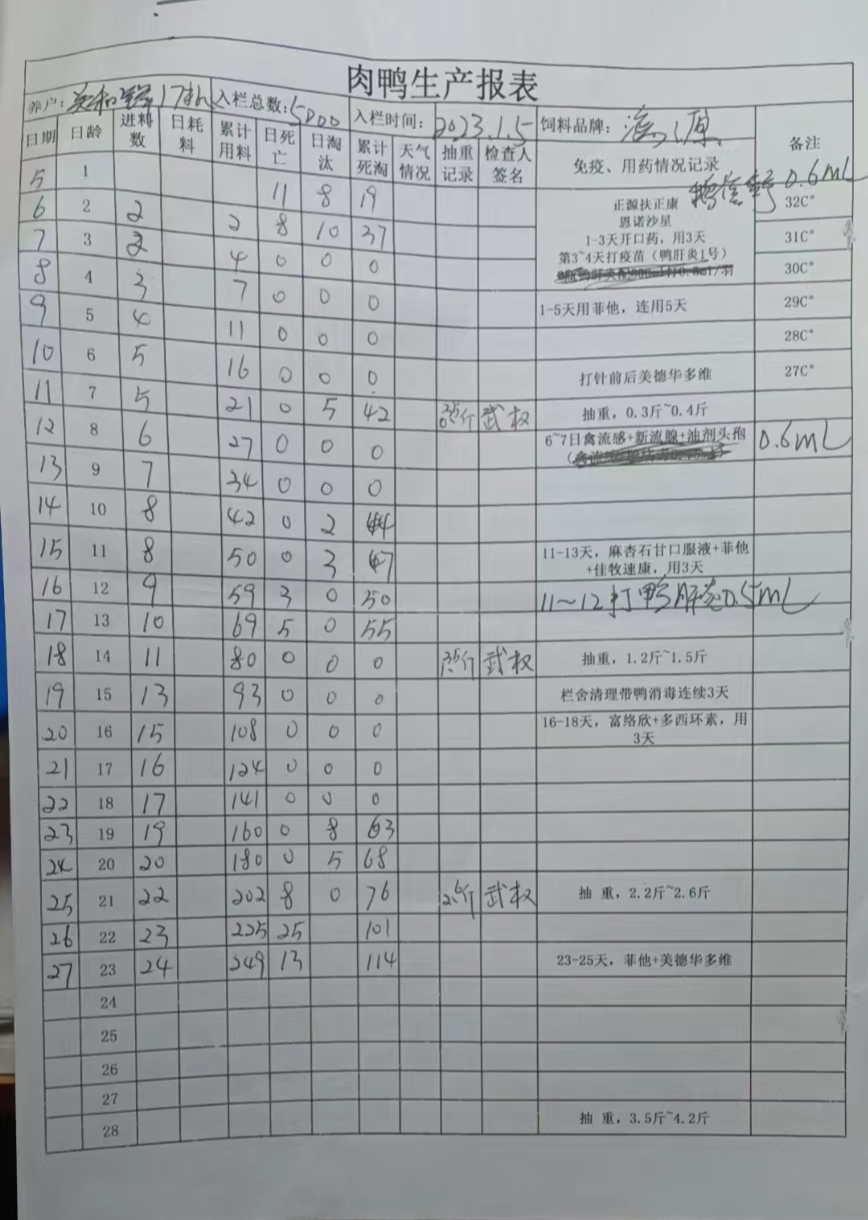 肉鸭生产报表
养户: 17栋 入栏总数:5000 入栏时间:2023.1.5 饲料品牌: 源 备注
日期 日龄 进料数 日耗料 累计用料 日死亡 日淘汰 累计死淘 天气情况 抽重记录 检查人签名 免疫、用药情况记录
5 1 11 8 19 正源扶正康 0.6mL
6 2 2 2 8 10 37 恩诺沙星 32C°
7 3 2 4 0 0 0 1-3天开口药,用3天 31C°
第3~4天打疫苗(鸭肝炎1号)
8 4 3 7 0 0 0 30C°
9 5 4 11 0 0 0 1-5天用菲他,连用5天 29C°
28C°
10 6 5 16 0 0 0 打针前后美德华多维 27C°
11 7 5 21 0 5 42 武权 抽重,0.3斤~0.4斤
12 8 6 27 0 0 0 6~7日禽流感+新流腺+油剂头孢 0.6mL
13 9 7 34 0 0 0
14 10 8 42 0 2 44
15 11 8 50 0 3 47 11-13天,麻杏石甘口服液+菲他+佳牧速康,用3天
16 12 9 59 3 0 50 11~12打鸭肝炎0.5mL
17 13 10 69 5 0 55
18 14 11 80 0 0 0 武权 抽重,1.2斤~1.5斤
19 15 13 93 0 0 0 栏舍清理带鸭消毒连续3天
20 16 15 108 0 0 0 16-18天,富络欣+多西环素,用3天
21 17 16 124 0 0 0
22 18 17 141 0 0 0
23 19 19 160 0 8 63
24 20 20 180 0 5 68
25 21 22 202 8 0 76 2.6斤 武权 抽 重,2.2斤~2.6斤
26 22 23 225 25 101
27 23 24 249 13 114 23-25天,菲他+美德华多维
24
25
26
27
28 抽 重,3.5斤~4.2斤